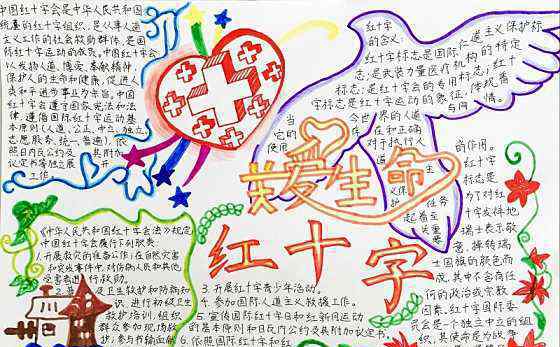 中国红十字会是中华人民共和国
统一的红十字组织,是从事人道
主义工作的社会救助群体,是国
际红十字运动的成员。中国红十字会
以发扬人道、博爱、奉献精神,
保护人的生命和健康,促进人
类和平进步事业为宗旨。中国
红十字会遵守国家宪法和法
律,遵循国际红十字运动基
本原则(人道,公正,中立,独立,
志愿服务,统一,普遍),依
照日内瓦公约及其附加
议定书等独立展开
工作。
红十字
的含义:
红十字标志是国际人道主义保护标
志;是武装力量医疗机构的特定
标志;是红十字会的专用标志;红十
字标志是红十字运动的象征,体现着
当今世界的人道与同情。
它的
使用
在和正确
对于执行人
道主
义保护
任务
起着至
关重要
的作用。
红十字
标志是
为了对红
十字发件地
瑞士表示敬
意,择传瑞
士国旗的颜色而
成,其中不含有任
何的政治或宗教
因素。红十字国际委
员会是个独立中立的组
织,其使命是为战争
关爱生命
红十字
《中华人民共和国红十字会法》规定
中国红十字会履行下列职责:
1.开展救灾的准备工作;在自然灾害
和突发事件中,对伤病人员和其他
受害者进行救助。
2.普及卫生救护和防病知
识,进行初级卫生
救护培训,组织
群众参加现场救
护;参与输血献血
3.开展红十字青少年活动。
4.参加国际人道主义救援工作。
5.宣传国际红十字日和红新月运动
的基本原则和日内瓦公约及其附加议定书。
6.依照国际红十字和红